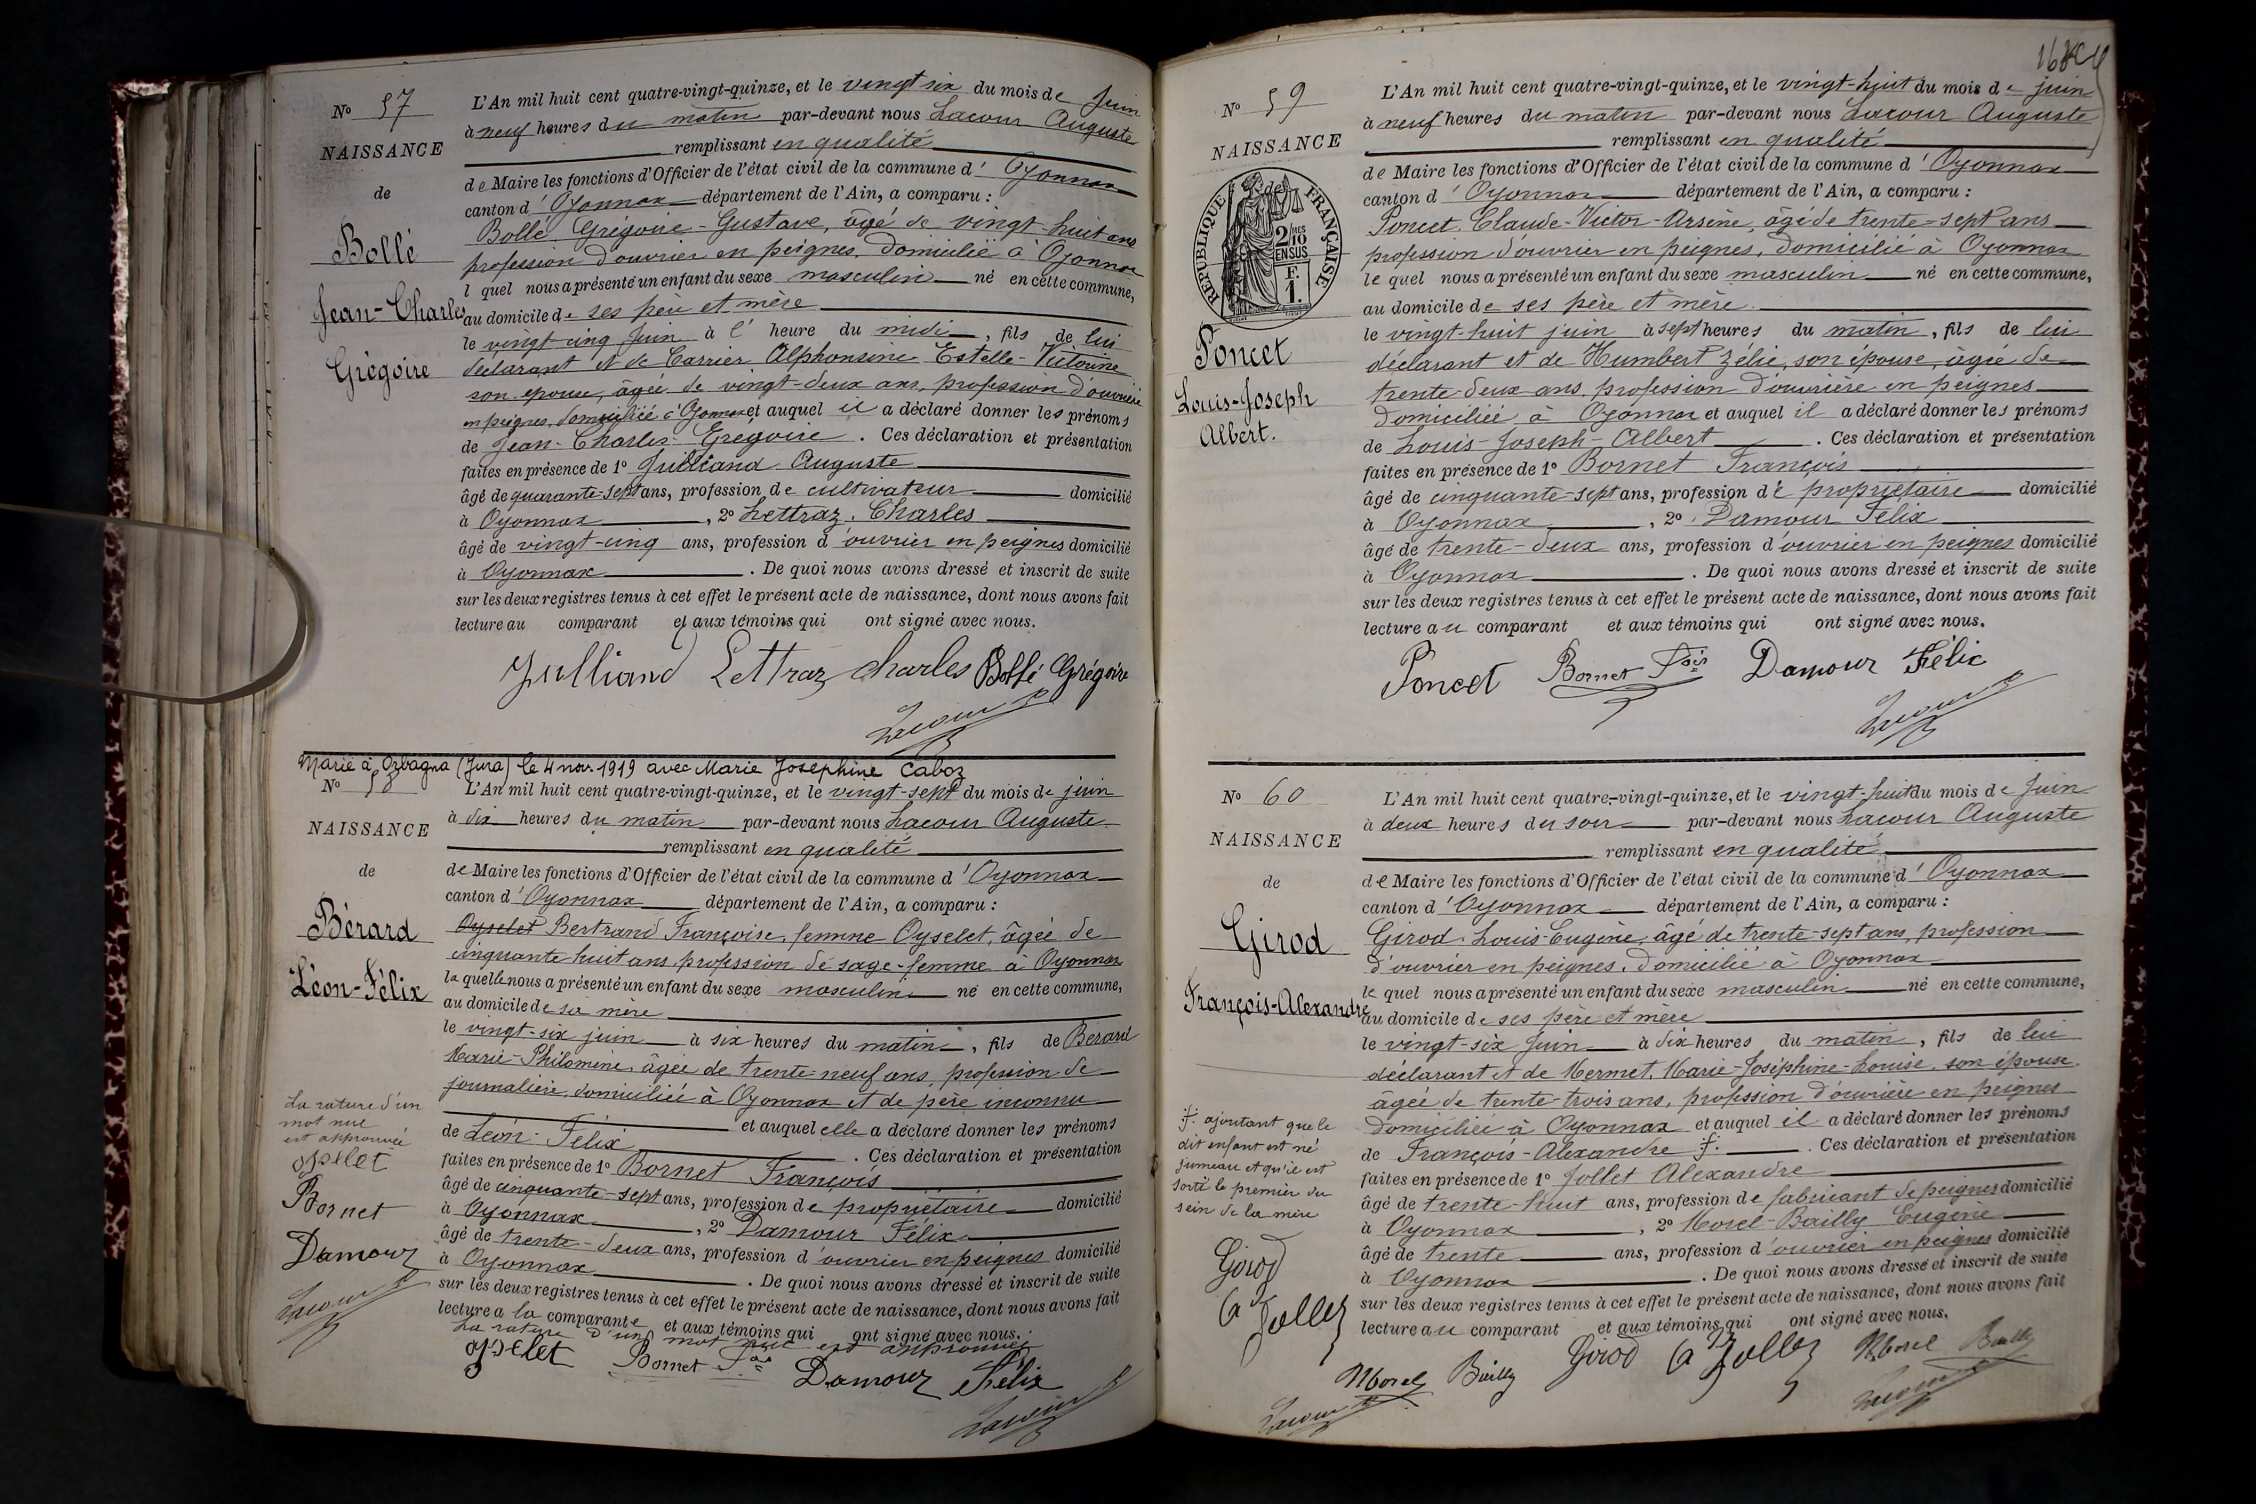 No 57
NAISSANCE
de
Bollé
Jean-Charles
Grégoire
L'An mil huit cent quatre-vingt-quinze, et le vingt six du mois de Juin
à neuf heures du matin par-devant nous Lacour Auguste
remplissant en qualité
de Maire les fonctions d'Officier de l'état civil de la commune d'Oyonnax
canton d'Oyonnax département de l'Ain, a comparu :
Bollé Grégoire-Gustave, âgé de vingt-huit ans
profession d'ouvrier en peignes, domicilié à Oyonnax
l quel nous a présenté un enfant du sexe masculin né en cette commune,
au domicile de ses père et mère
le vingt cinq Juin à l' heure du midi, fils de lui
déclarant et de Carrier Alphonsine-Estelle-Victorine
son épouse, âgée de vingt-deux ans, profession d'ouvrière
en peignes, domiciliée à Oyonnax et auquel il a déclaré donner les prénoms
de Jean-Charles-Grégoire. Ces déclaration et présentation
faites en présence de 1o Julliand Auguste
âgé de quarante-sept ans, profession de cultivateur domicilié
à Oyonnax, 2o Lettraz Charles
âgé de vingt-cinq ans, profession d'ouvrier en peignes domicilié
à Oyonnax. De quoi nous avons dressé et inscrit de suite
sur les deux registres tenus à cet effet le présent acte de naissance, dont nous avons fait
lecture au comparant et aux témoins qui ont signé avec nous.
Julliand Lettraz Charles Bollé Grégoire
Lacour
Marié à Orbagna (Jura) le 4 nov. 1919 avec Marie Josephine Caboz
No 58
NAISSANCE
de
Bérard
Léon-Félix
La rature d'un
mot nul
est approuvée
Oyselet
Bornet
Damour
Lacour
L'An mil huit cent quatre-vingt-quinze, et le vingt-sept du mois de juin
à dix heures du matin par-devant nous Lacour Auguste
remplissant en qualité
de Maire les fonctions d'Officier de l'état civil de la commune d'Oyonnax
canton d'Oyonnax département de l'Ain, a comparu :
Oyselet Bertrand Françoise, femme Oyselet, âgée de
cinquante huit ans, profession de sage-femme à Oyonnax
laquelle nous a présenté un enfant du sexe masculin né en cette commune,
au domicile de sa mère
le vingt-six juin à six heures du matin, fils de Bérard
Marie-Philomène, âgée de trente-neuf ans, profession de
journalière, domiciliée à Oyonnax et de père inconnu
et auquel elle a déclaré donner les prénoms
de Léon-Félix. Ces déclaration et présentation
faites en présence de 1o Bornet François
âgé de cinquante-sept ans, profession de propriétaire domicilié
à Oyonnax, 2o Damour Félix
âgé de trente-deux ans, profession d'ouvrier en peignes domicilié
à Oyonnax. De quoi nous avons dressé et inscrit de suite
sur les deux registres tenus à cet effet le présent acte de naissance, dont nous avons fait
lecture a la comparante et aux témoins qui ont signé avec nous.
La rature d'un mot nul est approuvée
Oyselet Bornet Fois Damour Félix
Lacour
No 59
NAISSANCE
de
RÉPUBLIQUE FRANÇAISE
2/10mes
EN SUS
F.
1.
Poncet
Louis-Joseph
Albert.
L'An mil huit cent quatre-vingt-quinze, et le vingt-huit du mois de juin
à neuf heures du matin par-devant nous Lacour Auguste
remplissant en qualité
de Maire les fonctions d'Officier de l'état civil de la commune d'Oyonnax
canton d'Oyonnax département de l'Ain, a comparu :
Poncet Claude-Victor-Arsène, âgé de trente-sept ans
profession d'ouvrier en peignes, domicilié à Oyonnax
le quel nous a présenté un enfant du sexe masculin né en cette commune,
au domicile de ses père et mère.
le vingt-huit juin à sept heures du matin, fils de lui
déclarant et de Humbert Zélie, son épouse, âgée de
trente-deux ans, profession d'ouvrière en peignes
domiciliée à Oyonnax et auquel il a déclaré donner les prénoms
de Louis-Joseph-Albert. Ces déclaration et présentation
faites en présence de 1o Bornet François
âgé de cinquante-sept ans, profession de propriétaire domicilié
à Oyonnax, 2o Damour Félix
âgé de trente-deux ans, profession d'ouvrier en peignes domicilié
à Oyonnax. De quoi nous avons dressé et inscrit de suite
sur les deux registres tenus à cet effet le présent acte de naissance, dont nous avons fait
lecture au comparant et aux témoins qui ont signé avec nous.
Poncet Bornet Fois Damour Félix
Lacour
No 60
NAISSANCE
de
Girod
François-Alexandre
f. ajoutant que le
dit enfant est né
jumeau et qu'il est
sorti le premier du
sein de la mère
Girod
A Jollet
Morel Bailly
Lacour
L'An mil huit cent quatre-vingt-quinze, et le vingt-huit du mois de Juin
à deux heures du soir par-devant nous Lacour Auguste
remplissant en qualité
de Maire les fonctions d'Officier de l'état civil de la commune d'Oyonnax
canton d'Oyonnax département de l'Ain, a comparu :
Girod Louis-Eugène, âgé de trente-sept ans, profession
d'ouvrier en peignes, domicilié à Oyonnax
le quel nous a présenté un enfant du sexe masculin né en cette commune,
au domicile de ses père et mère
le vingt-six Juin à dix heures du matin, fils de lui
déclarant et de Mermet Marie-Joséphine-Louise, son épouse
âgée de trente-trois ans, profession d'ouvrière en peignes
domiciliée à Oyonnax et auquel il a déclaré donner les prénoms
de François-Alexandre f. Ces déclaration et présentation
faites en présence de 1o Jollet Alexandre
âgé de trente-huit ans, profession de fabricant de peignes domicilié
à Oyonnax, 2o Morel-Bailly Eugène
âgé de trente ans, profession d'ouvrier en peignes domicilié
à Oyonnax. De quoi nous avons dressé et inscrit de suite
sur les deux registres tenus à cet effet le présent acte de naissance, dont nous avons fait
lecture au comparant et aux témoins qui ont signé avec nous.
Girod A Jollet Morel Bailly
Lacour